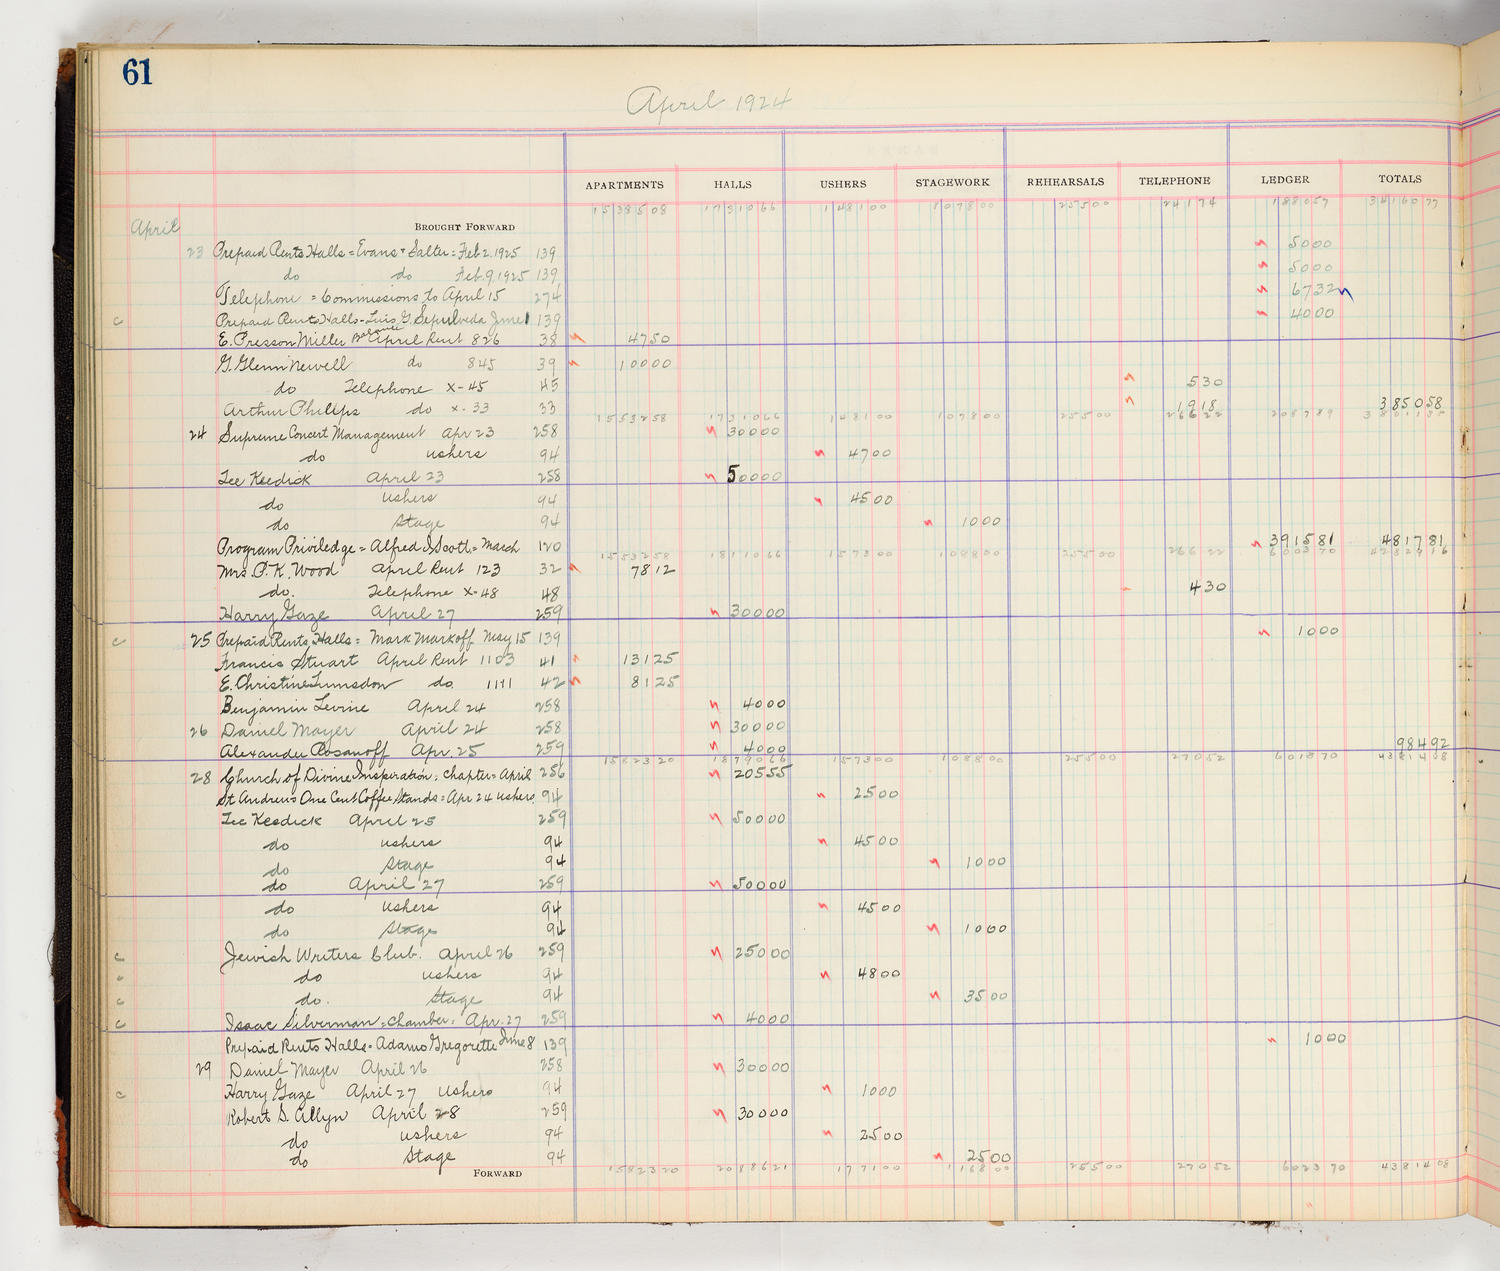 61
April 1924
APARTMENTS HALLS USHERS STAGEWORK REHEARSALS TELEPHONE LEDGER TOTALS
April BROUGHT FORWARD 1538508 1731066 148100 107800 25500 24174 188057 3416077
23 Prepaid Rents Halls = Evans & Salter = Feb 2. 1925 139 5000
do do Feb. 9, 1925 139 5000
Telephone = Commissions to April 15 274 6732
c Prepaid Rents Halls - Luis G. Sepulveda June 1 139 4000
E. Presson Miller Balance April Rent 826 38 4750
G. Glenn Newell do 845 39 10000
do Telephone x-45 45 530
Arthur Philips do x-33 33 1918 385058
1553258 1731066 148100 107800 25500 26622 208789
24 Supreme Concert Management Apr 23 258 30000
do ushers 94 4700
Lee Keedick April 23 258 50000
do ushers 94 4500
do Stage 94 1000
Program Priviledge = Alfred J Scott = March 120 391581 481781
1553258 1811066 157300 108800 25500 26622 600370 4282916
Mrs. P. K. Wood April Rent 123 32 7812
do. Telephone x-48 48 430
Harry Gaze April 27 259 30000
c 25 Prepaid Rents Halls = Mark Markoff May 15 139 1000
Francis Stuart April Rent 1103 41 13125
E. Christine Lumsdon do. 1111 42 8125
Benjamin Levine April 24 258 4000
26 Daniel Mayer April 24 258 30000
Alexander Rosanoff Apr. 25 259 4000 98492
1582320 1879066 157300 108800 25500 27052 601370 4381408
28 Church of Divine Inspiration; Chapter = April 256 20555
St Andrews One Cent Coffee Stands = Apr 24 ushers 94 2500
Lee Keedick April 25 259 50000
do ushers 94 4500
do Stage 94 1000
do April 27 259 50000
do ushers 94 4500
do Stage 94 1000
c Jewish Writers Club. April 26 259 25000
c do ushers 94 4800
c do. Stage 94 3500
c Isaac Silverman = Chamber = Apr. 27 259 4000
Prepaid Rents Halls = Adamo Gregorette June 8 139 1000
29 Daniel Mayer April 26 258 30000
c Harry Gaze April 27 ushers 94 1000
Robert S. Allyn April 28 259 30000
do ushers 94 2500
do Stage 94 2500
FORWARD 1582320 2088621 177100 116800 25500 27052 602370 4381408